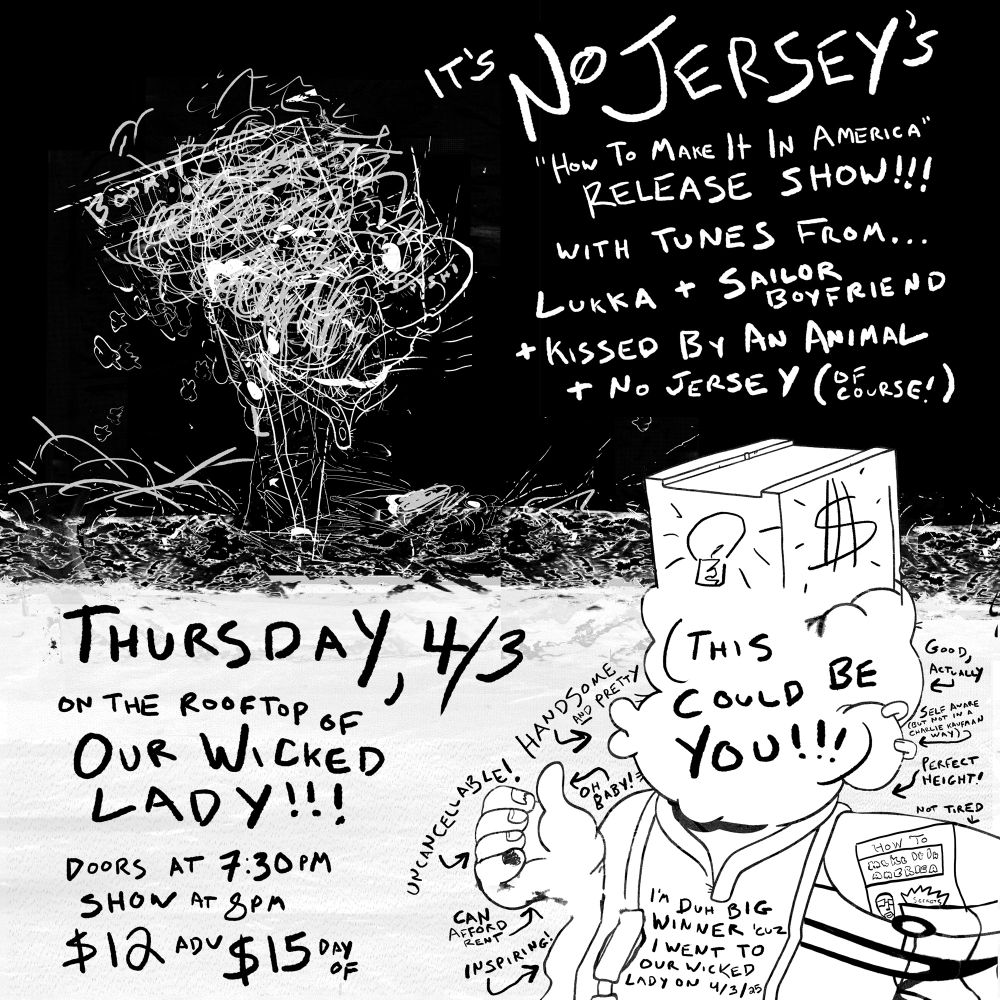 IT'S NO JERSEY'S
"HOW TO MAKE IT IN AMERICA"
RELEASE SHOW!!!
WITH TUNES FROM...
LUKKA + SAILOR
BOYFRIEND
+ KISSED BY AN ANIMAL
+ NO JERSEY (OF
COURSE!)
BOOM!
$
THURSDAY, 4/3
ON THE ROOFTOP OF
OUR WICKED
LADY!!!
DOORS AT 7:30PM
SHOW AT 8PM
$12 ADV $15 DAY
OF
(THIS
COULD BE
YOU!!!)
HANDSOME
AND PRETTY
OH
BABY!
UNCANCELLABLE!
CAN
AFFORD
RENT
INSPIRING!
GOOD,
ACTUALLY
SELF AWARE
(BUT NOT IN A
CHARLIE KAUFMAN
WAY)
PERFECT
HEIGHT!
NOT TIRED
HOW TO
MAKE IT IN
AMERICA
SECRETS
I'M DUH BIG
WINNER 'CUZ
I WENT TO
OUR WICKED
LADY ON 4/3/25